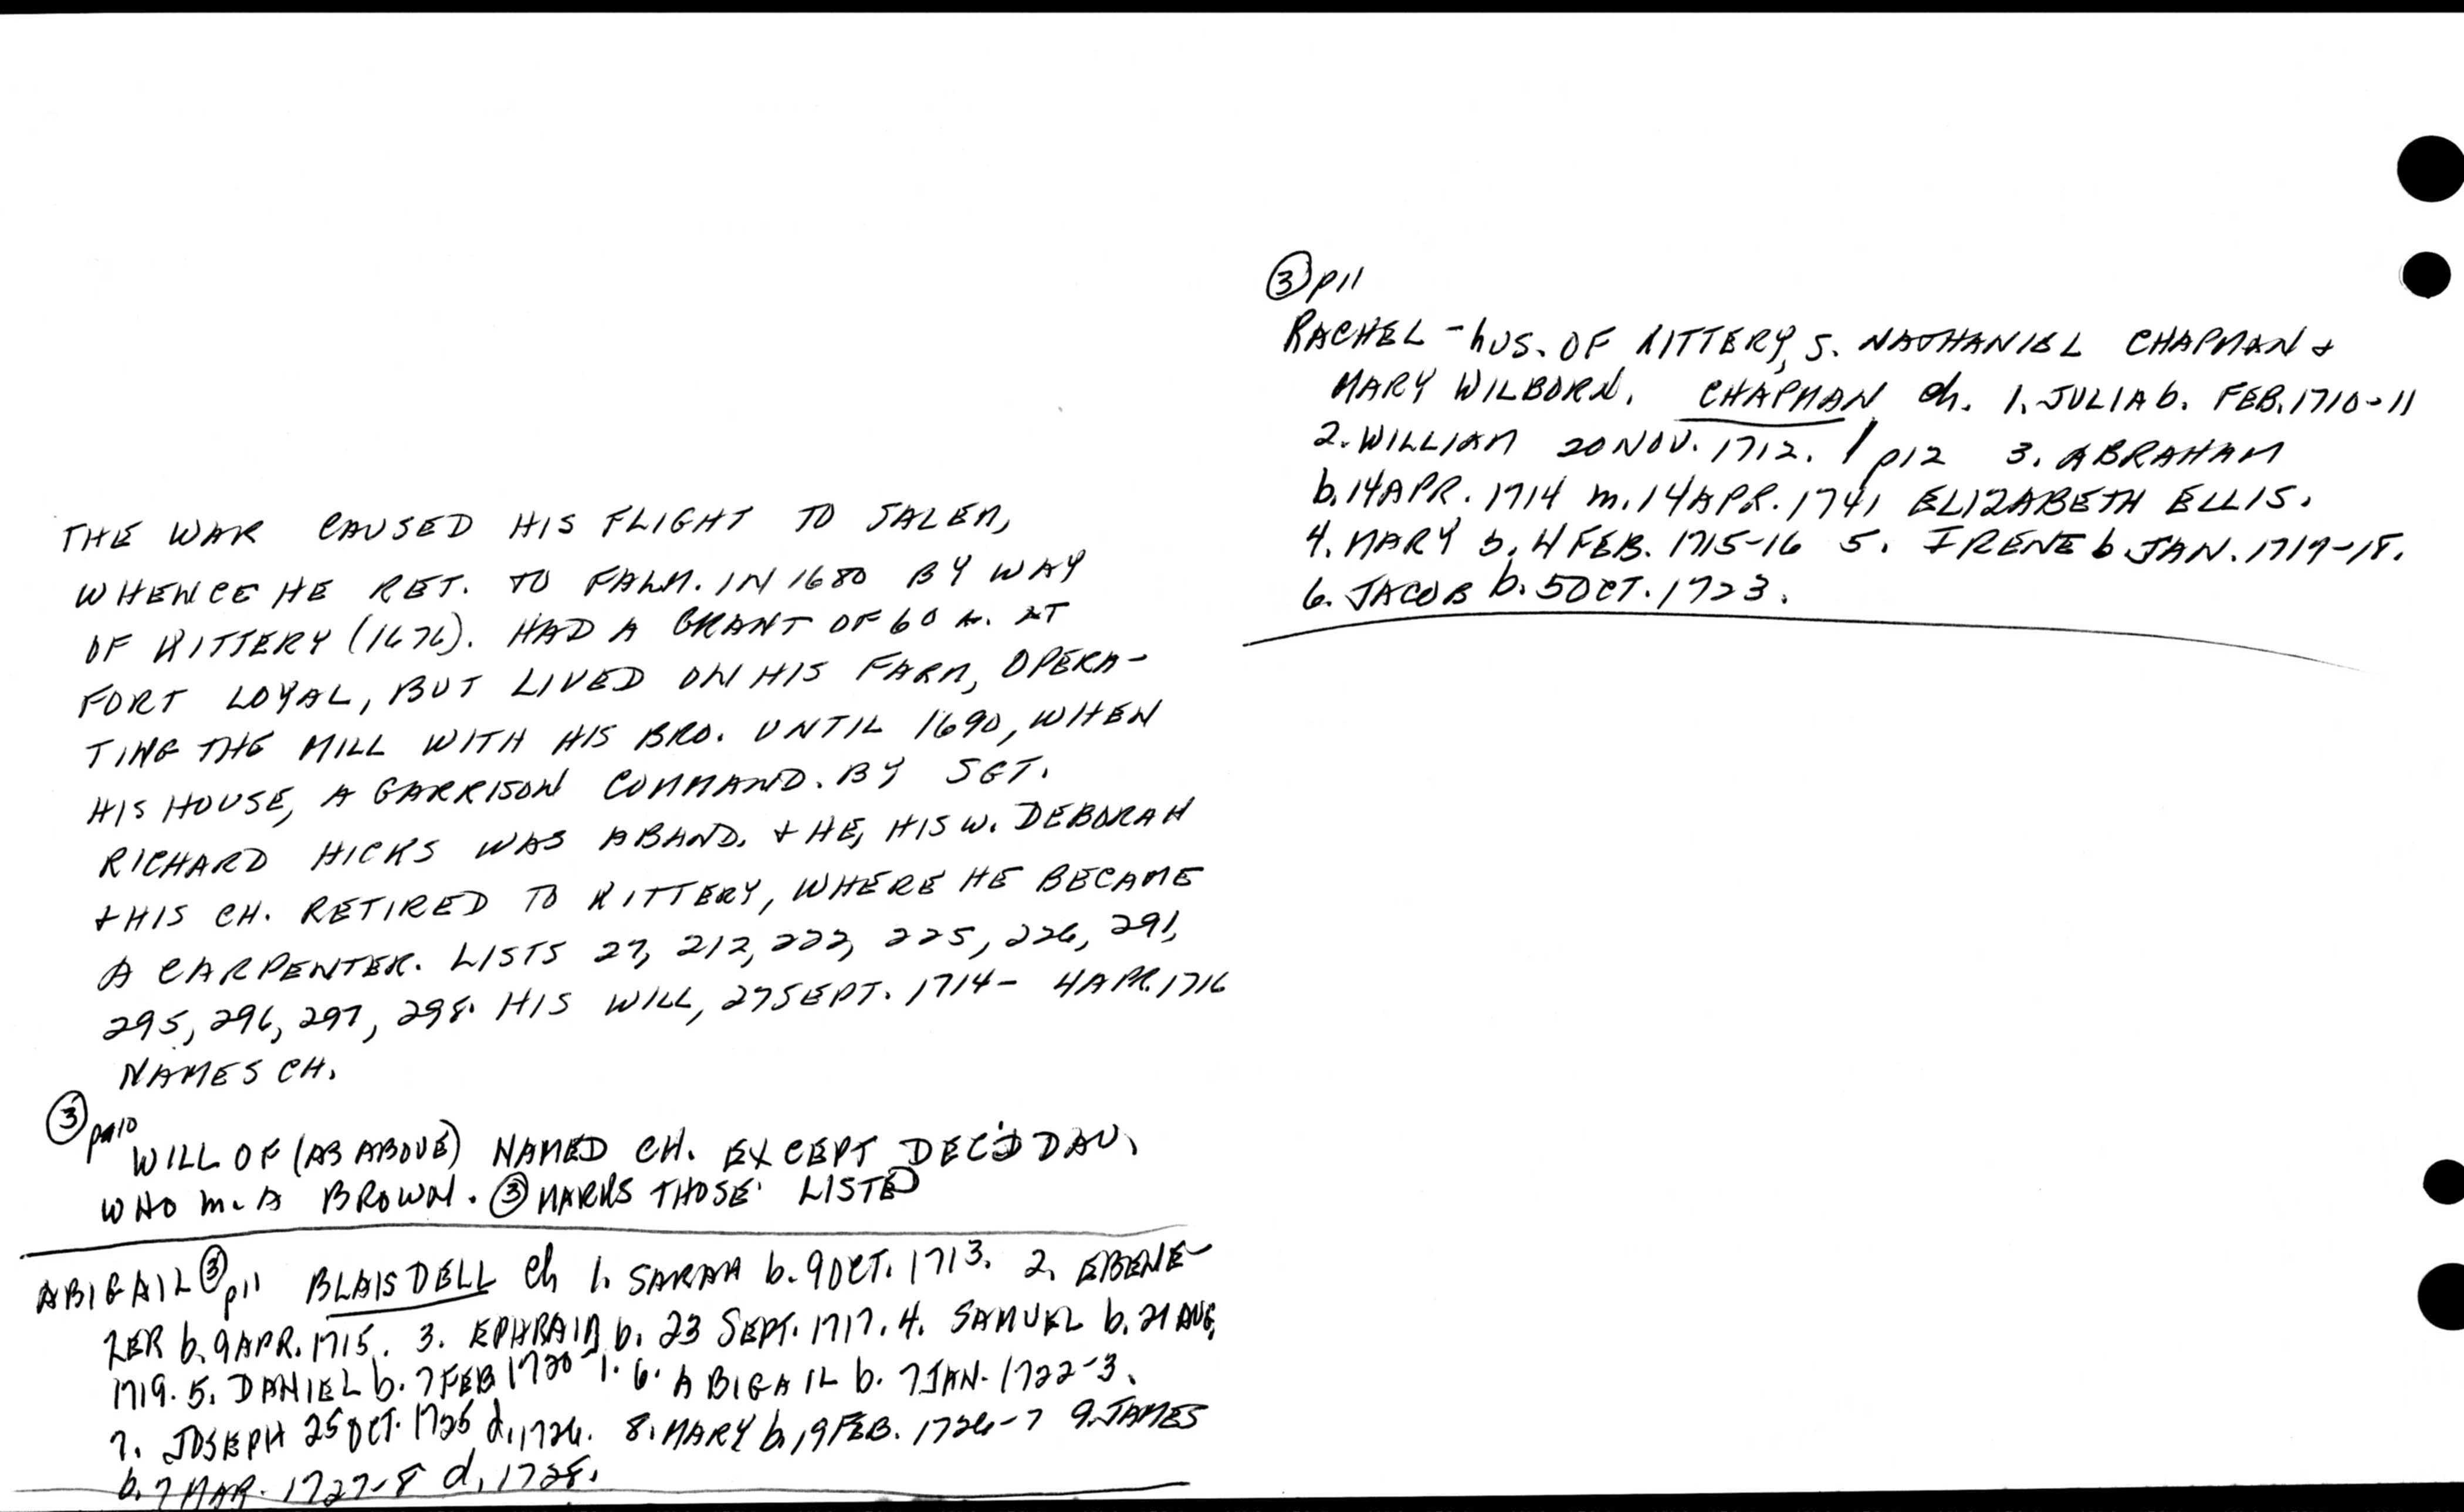 THE WAR CAUSED HIS FLIGHT TO SALEM,
WHENCE HE RET. TO FALM. IN 1680 BY WAY
OF KITTERY (1676). HAD A GRANT OF 60 A. AT
FORT LOYAL, BUT LIVED ON HIS FARM, OPERA-
TING THE MILL WITH HIS BRO. UNTIL 1690, WHEN
HIS HOUSE, A GARRISON COMMAND. BY SGT.
RICHARD HICKS WAS ABAND. & HE, HIS W. DEBORAH
& HIS CH. RETIRED TO KITTERY, WHERE HE BECAME
A CARPENTER. LISTS 27, 212, 222, 225, 226, 291,
295, 296, 297, 298. HIS WILL, 27 SEPT. 1714 - 4 APR. 1716
NAMES CH.
③ p10
WILL OF (AS ABOVE) NAMED CH. EXCEPT DEC'D DAU.
WHO m. A BROWN. ③ MARKS THOSE LISTED
ABIGAIL ③ p11 BLAISDELL Ch 1. SARAH b. 9 OCT. 1713. 2. EBENE-
ZER b. 9 APR. 1715. 3. EPHRAIM b. 23 SEPT. 1717. 4. SAMUEL b. 21 AUG.
1719. 5. DANIEL b. 7 FEB 1720-1. 6. ABIGAIL b. 7 JAN. 1722-3.
7. JOSEPH 25 OCT. 1725 d. 1726. 8. MARY b. 19 FEB. 1726-7 9. JAMES
b. 7 MAR. 1727-8 d. 1728.
③ p11
RACHEL - hUS. OF KITTERY, S. NATHANIEL CHAPMAN &
MARY WILBORN. CHAPMAN ch. 1. JULIA b. FEB. 1710-11
2. WILLIAM 20 NOV. 1712. / p12 3. ABRAHAM
b. 14 APR. 1714 m. 14 APR. 1741 ELIZABETH ELLIS.
4. MARY b. 4 FEB. 1715-16 5. IRENE b JAN. 1717-18.
6. JACOB b. 5 OCT. 1723.